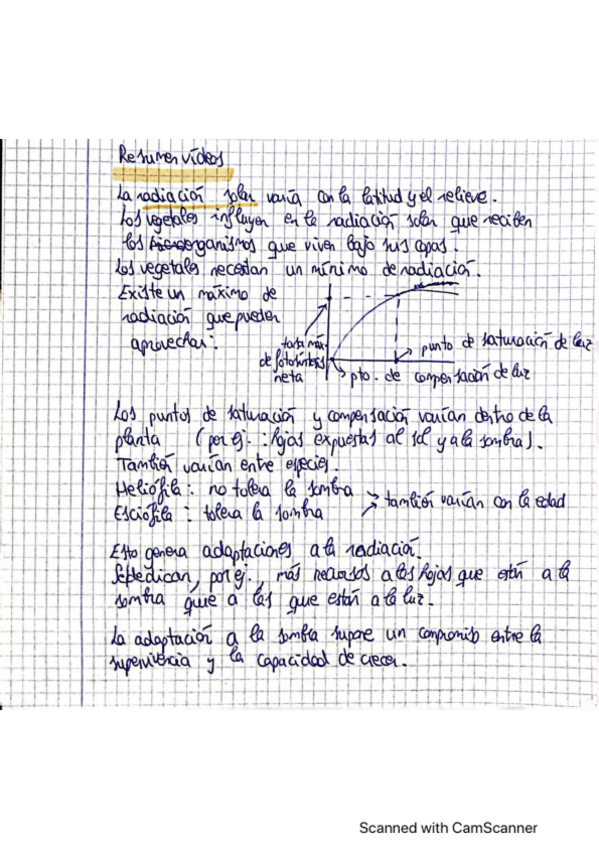 Resumen vídeos
La radiación solar varía con la latitud y el relieve.
Los vegetales influyen en la radiación solar que reciben
los organismos que viven bajo sus copas.
Los vegetales necesitan un mínimo de radiación.
Existe un máximo de
radiación que pueden
aprovechar:
tasa máx.
de fotosíntesis
neta
punto de saturación de luz
pto. de compensación de luz
Los puntos de saturación y compensación varían dentro de la
planta (por ej.: hojas expuestas al sol y a la sombra).
También varían entre especies.
Heliófila: no tolera la sombra
Esciófila: tolera la sombra
también varían con la edad
Esto genera adaptaciones a la radiación.
Se dedican, por ej., más recursos a las hojas que están a la
sombra que a las que están a la luz.
La adaptación a la sombra supone un compromiso entre la
supervivencia y la capacidad de crecer.
Scanned with CamScanner